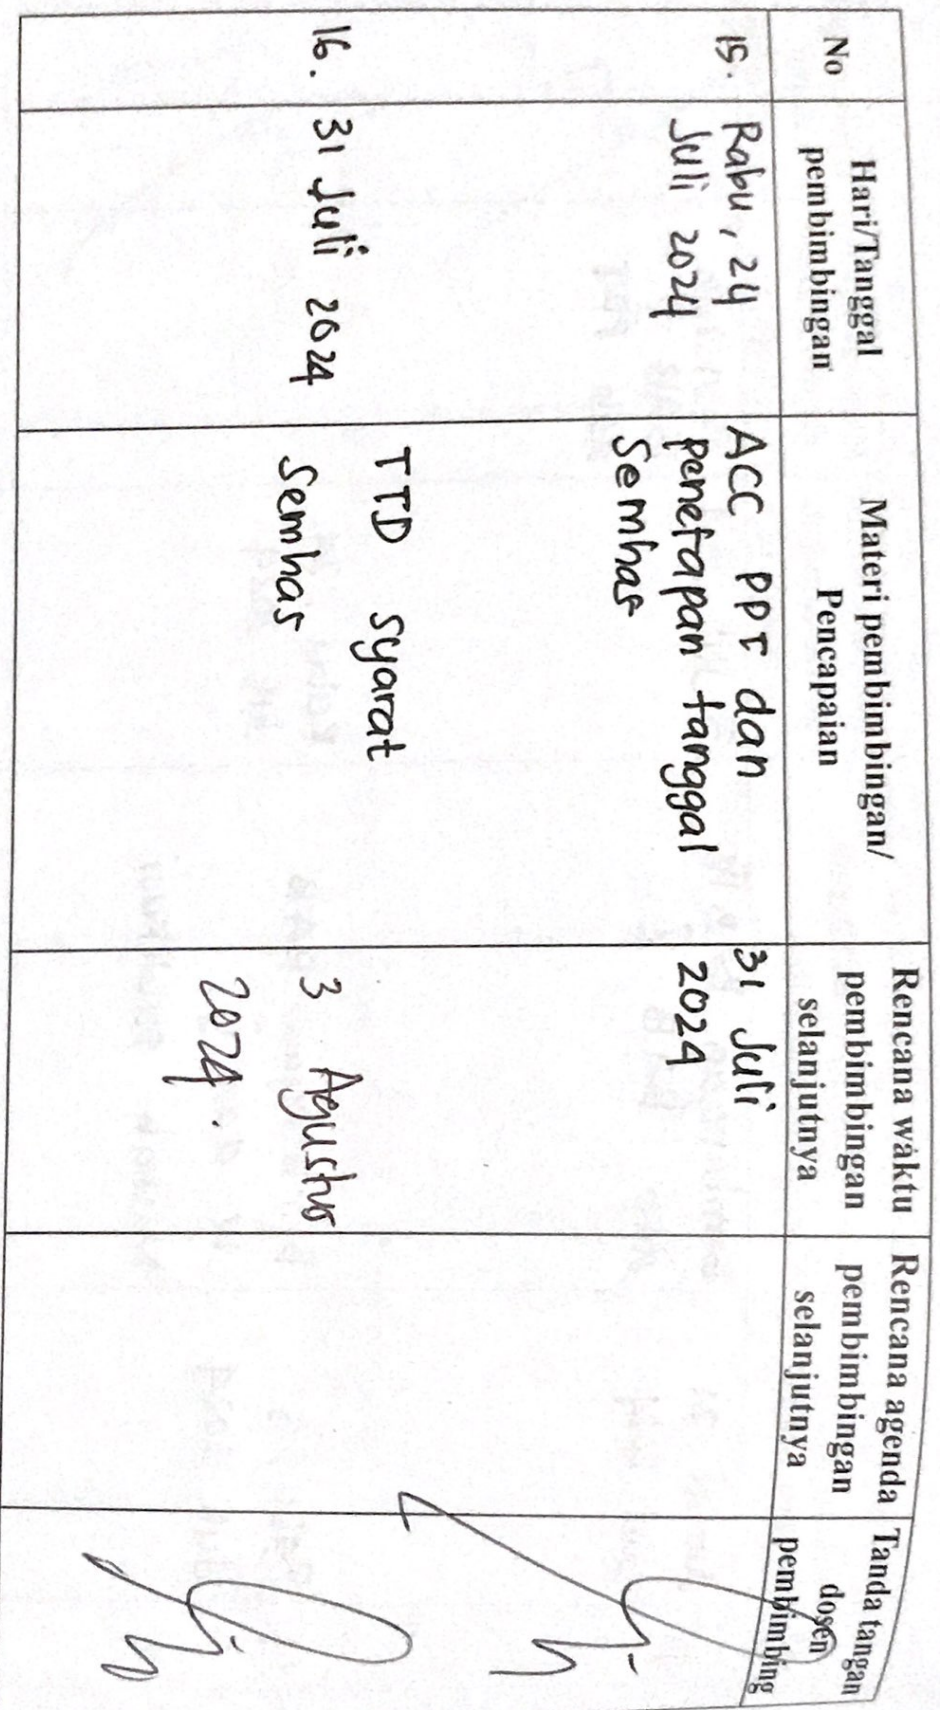 No
Hari/Tanggal
pembimbingan
Materi pembimbingan/
Pencapaian
Rencana waktu
pembimbingan
selanjutnya
Rencana agenda
pembimbingan
selanjutnya
Tanda tangan
dosen
pembimbing
15.
Rabu, 24
Juli 2024
ACC PPT dan
penetapan tanggal
Semhas
31 Juli
2024
16.
31 Juli 2024
TTD syarat
Semhas
3 Agustus
2024.